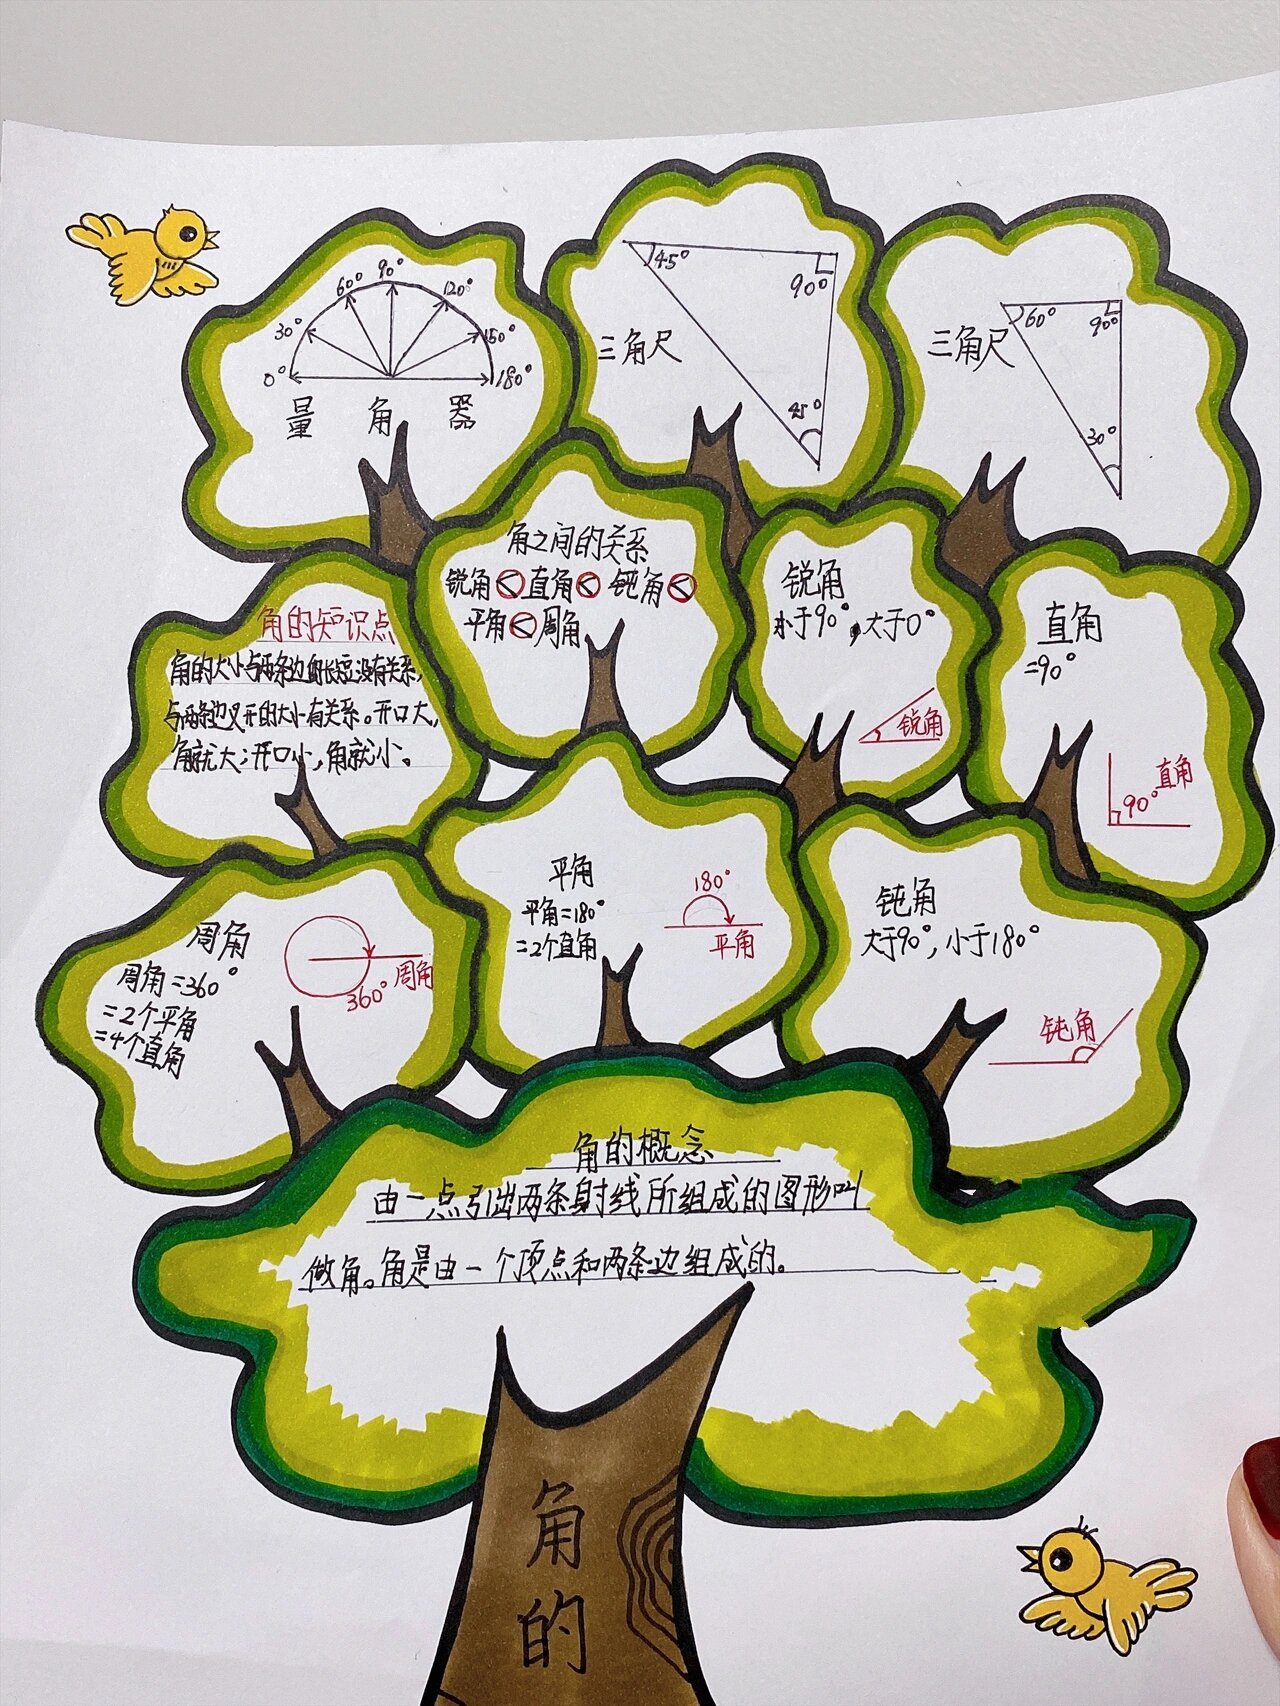 0° 30° 60° 90° 120° 150° 180°
量角器
45° 90°
三角尺
45°
60° 90°
三角尺
30°
角的知识点
角的大小与两条边的长短没有关系,
与两条边叉开的大小有关系。开口大,
角就大;开口小,角就小。
角之间的关系
锐角<直角<钝角<
平角<周角
锐角
小于90°,大于0°
锐角
直角
=90°
直角
90°
周角
周角=360°
=2个平角
=4个直角
360° 周角
平角
平角=180°
=2个直角
180°
平角
钝角
大于90°,小于180°
钝角
角的概念
由一点引出两条射线所组成的图形叫
做角。角是由一个顶点和两条边组成的。
角
的